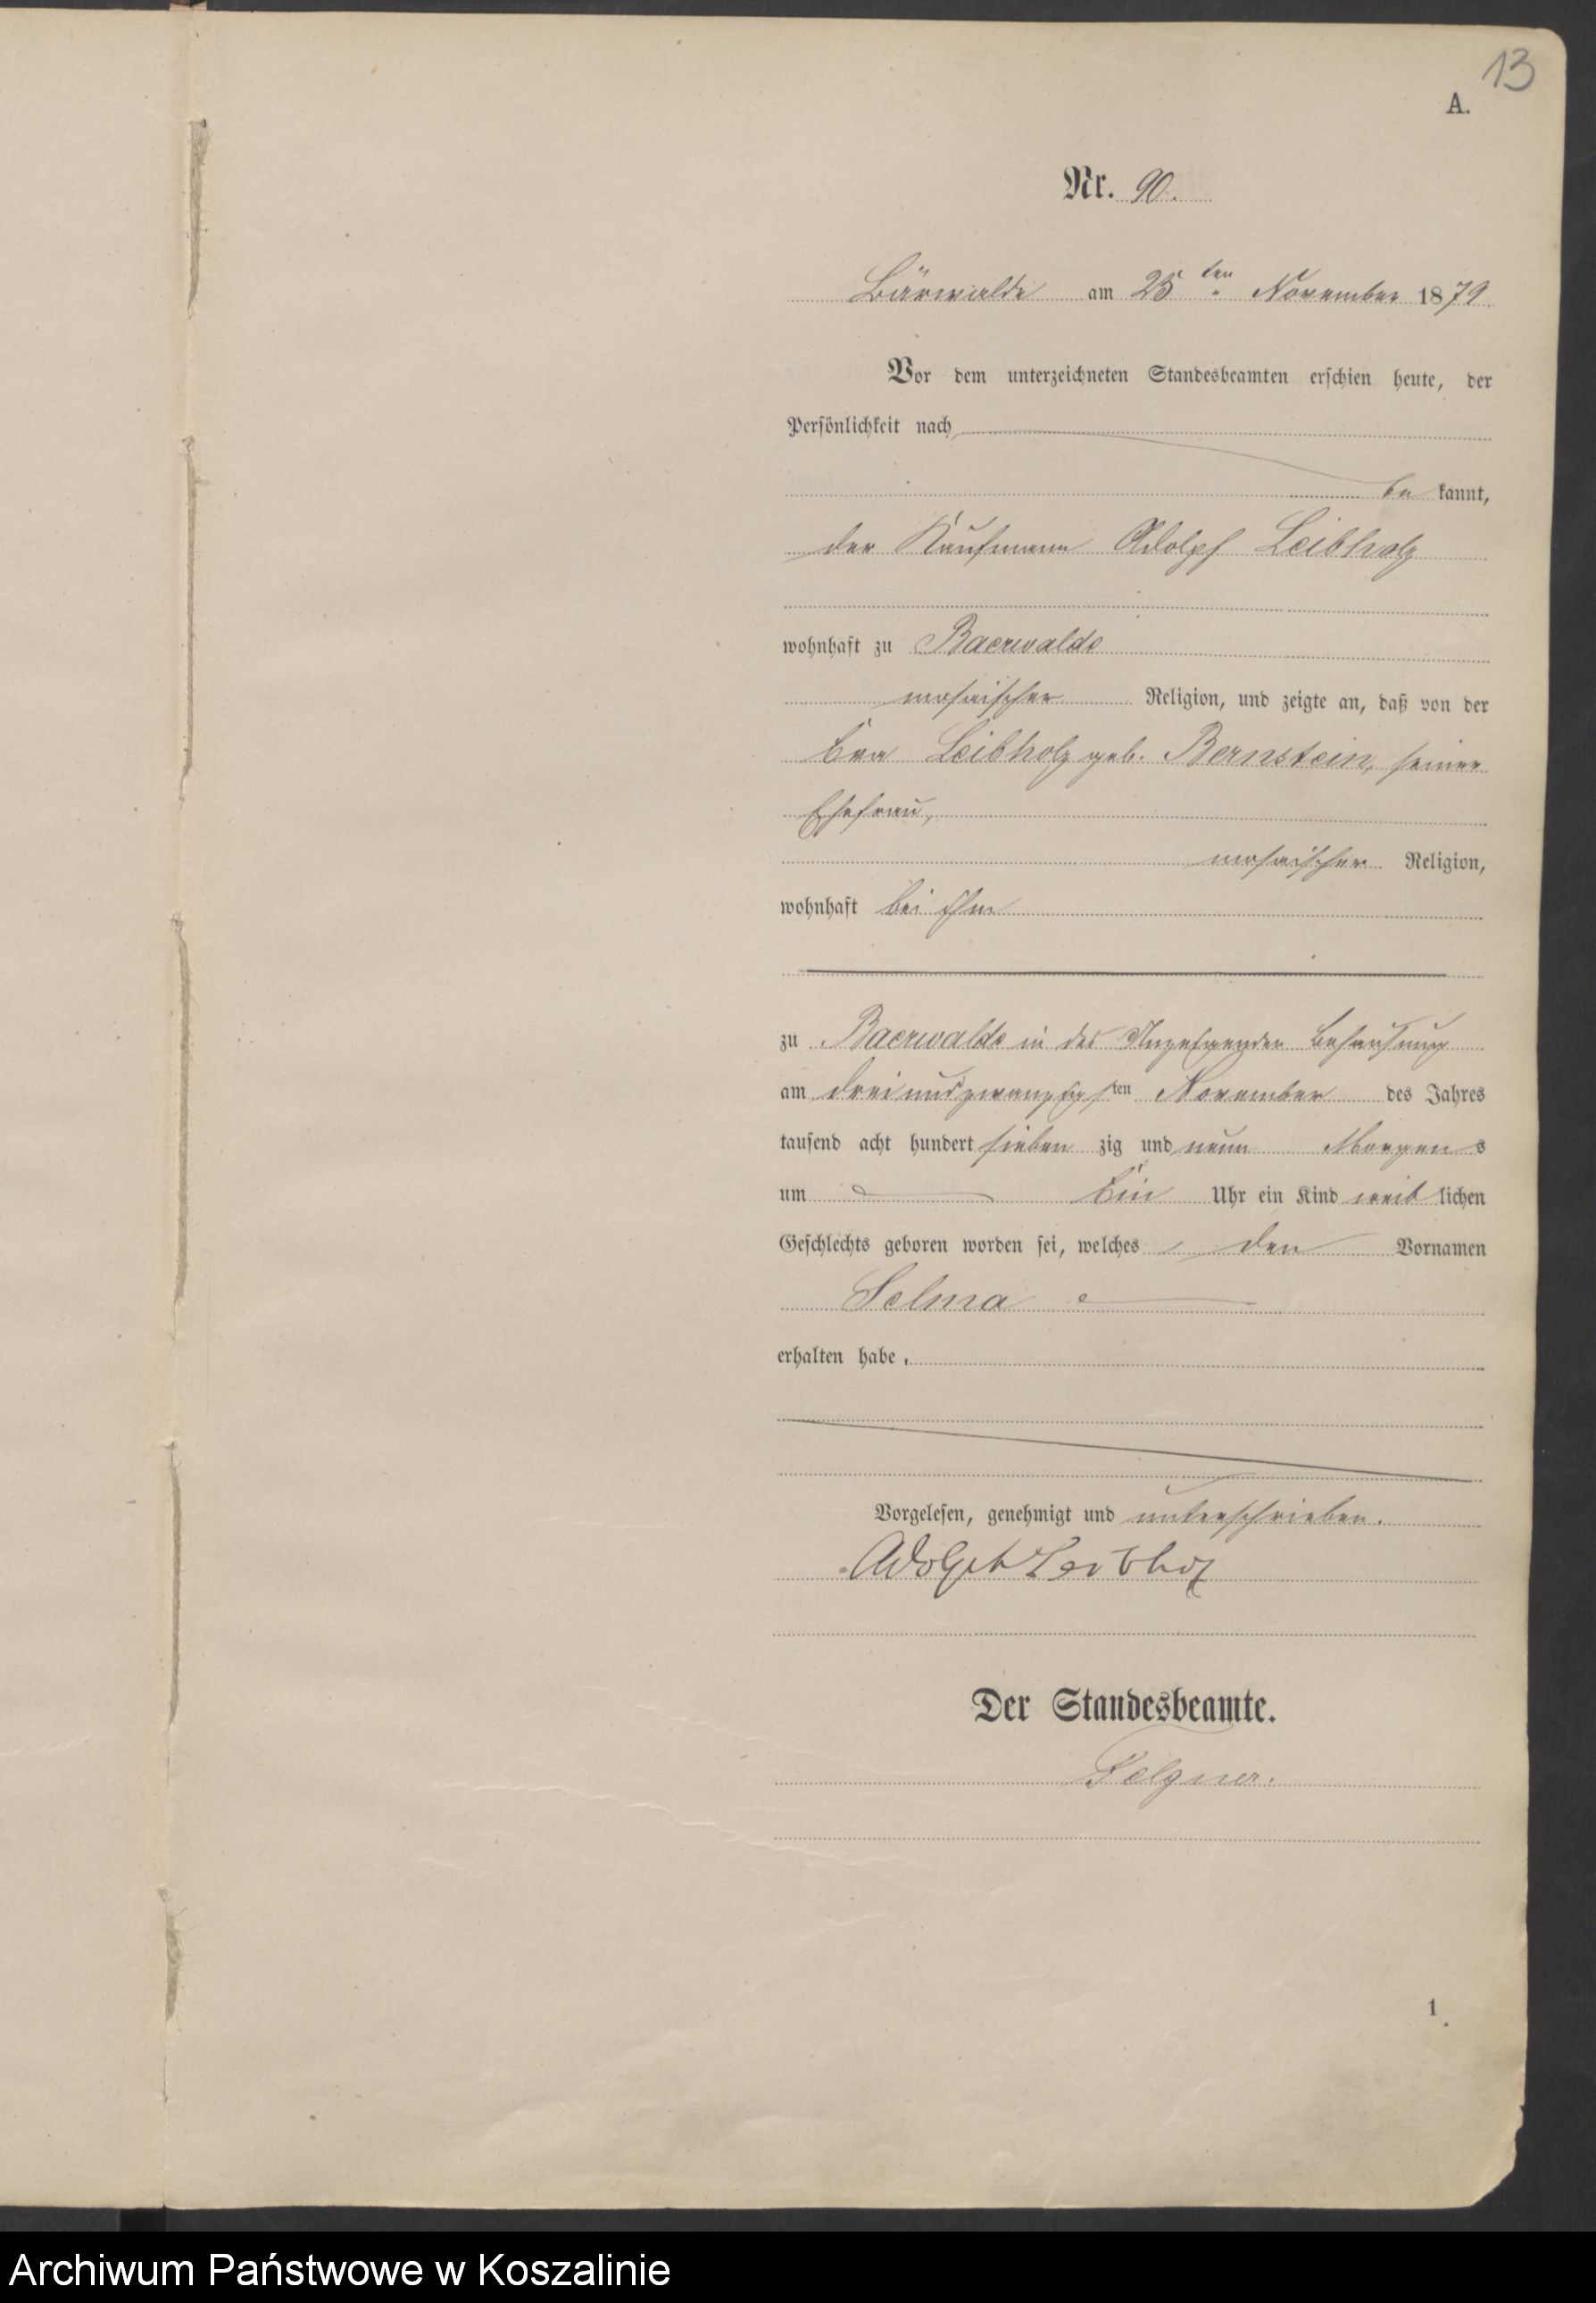 13
A.
Nr. 90.
Bärwalde am 25ten November 1879
Vor dem unterzeichneten Standesbeamten erschien heute, der
Persönlichkeit nach
be kannt,
der Kaufmann Adolph Leibholz
wohnhaft zu Baerwalde
mosaischer Religion, und zeigte an, daß von der
Leibholz geb. Bernstein, seiner
Ehefrau,
mosaischer Religion,
wohnhaft bei ihm
zu Baerwalde in des Behausung
am drei und zwanzigsten November des Jahres
tausend acht hundert sieben zig und neun Morgens
um Ein Uhr ein Kind weib lichen
Geschlechts geboren worden sei, welches den Vornamen
Selma
erhalten habe.
Vorgelesen, genehmigt und unterschrieben.
Adolph Leibholz
Der Standesbeamte.
Felgner.
1
Archiwum Państwowe w Koszalinie